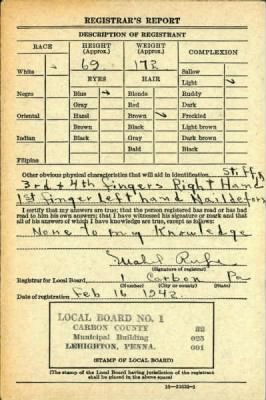 REGISTRAR'S REPORT
DESCRIPTION OF REGISTRANT
RACE HEIGHT (Approx.) WEIGHT (Approx.) COMPLEXION
69 172
White ✓ Sallow
EYES HAIR Light ✓
Negro Blue ✓ Blonde Ruddy
Gray Red Dark
Oriental Hazel Brown ✓ Freckled
Brown Black Light brown
Indian Black Gray Dark brown
Bald Black
Filipino
Other obvious physical characteristics that will aid in identification Stiff
3rd + 4th fingers Right Hand
1st finger left hand Nail
I certify that my answers are true; that the person registered has read or has had
read to him his own answers; that I have witnessed his signature or mark and that
all of his answers of which I have knowledge are true, except as follows:
None To my Knowledge
(Signature of registrar)
Registrar for Local Board 1 Carbon Pa
(Number) (City or county) (State)
Date of registration Feb 16 1942
LOCAL BOARD NO. 1
CARBON COUNTY 32
Municipal Building 025
LEHIGHTON, PENNA. 001
(STAMP OF LOCAL BOARD)
(The stamp of the Local Board having jurisdiction of the registrant
shall be placed in the above space)